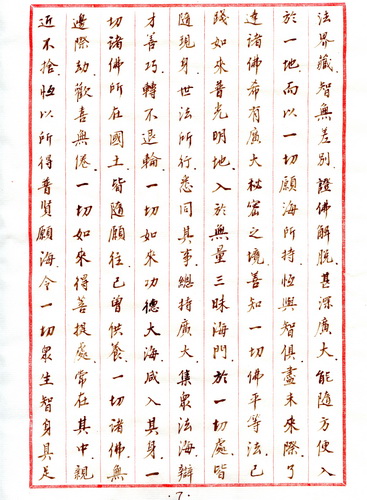 法界藏智無差別證佛解脫甚深廣大能隨方便入
於一地而以一切願海所持恆與智俱盡未來際了
達諸佛希有廣大秘密之境善知一切佛平等法已
踐如來普光明地入於無量三昧海門於一切處皆
隨現身世法所行悉同其事總持廣大集衆法海辯
才善巧轉不退輪一切如來功德大海咸入其身一
切諸佛所在國土皆隨願往已曾供養一切諸佛無
邊際劫歡喜無倦一切如來得菩提處常在其中親
近不捨恆以所得普賢願海令一切衆生智身具足
·7·